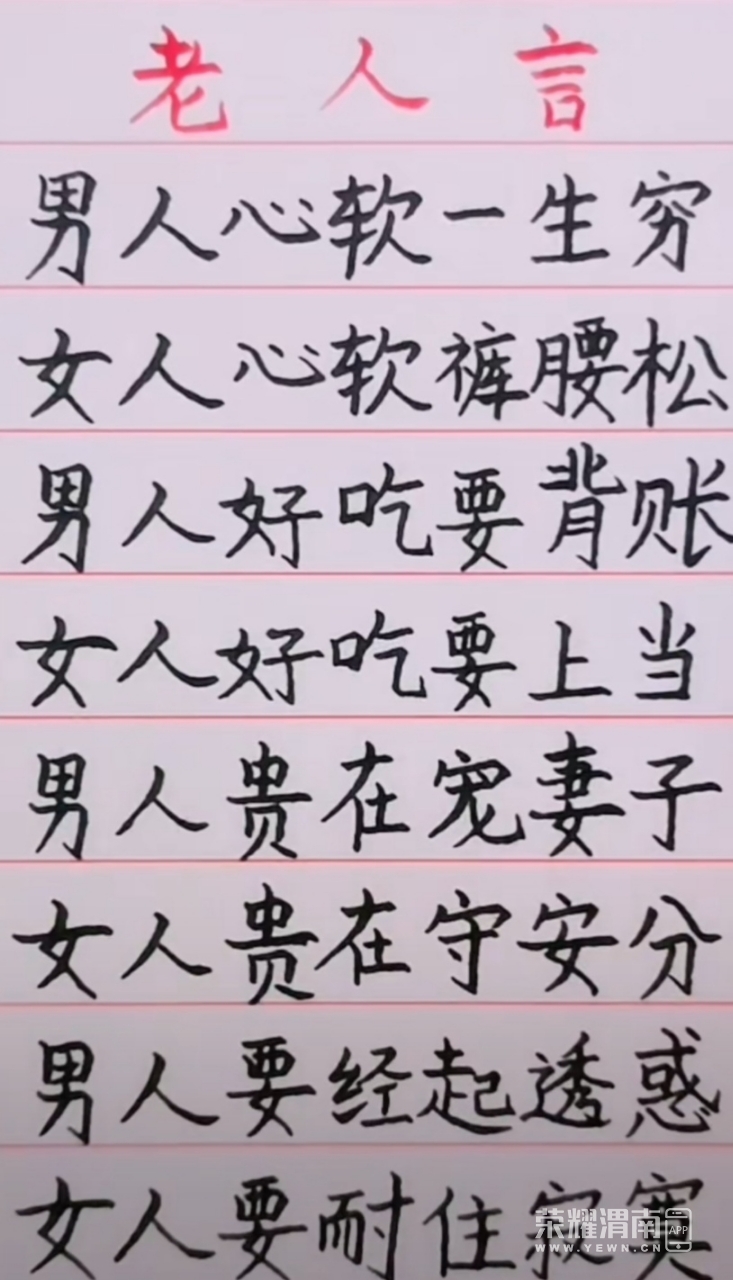 老人言
男人心软一生穷
女人心软裤腰松
男人好吃要背账
女人好吃要上当
男人贵在宠妻子
女人贵在守安分
男人要经起透惑
女人要耐住寂寞
荣耀渭南APP
WWW.YEWN.CN